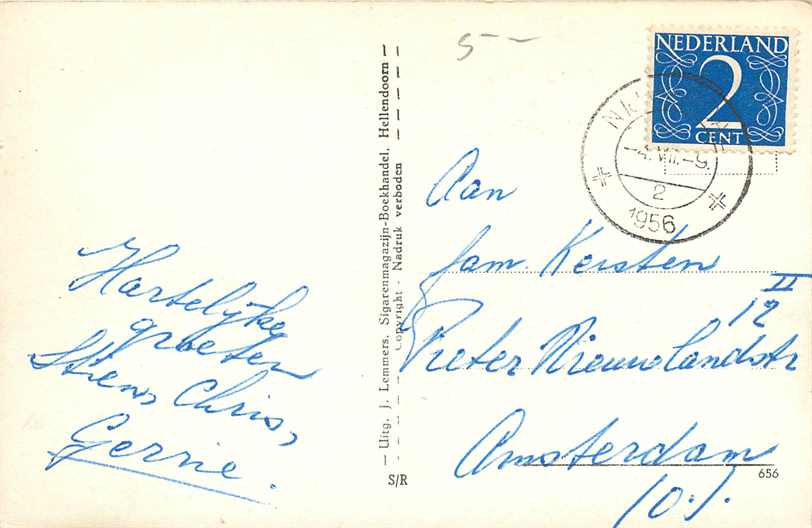 5-
NEDERLAND
2
CENT
-4.VII.-9.
2
1956
Hartelijke
groeten
Stien, Chris,
Gerrie.
— Uitg. J. Lemmers, Sigarenmagazijn-Boekhandel, Hellendoorn —
Copyright - Nadruk verboden
S/R
Aan
fam. Kersten
12 II
Pieter Nieuwlandstr
Amsterdam
(O).
656